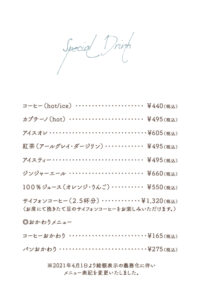 Special Drink
コーヒー(hot/ice) ‥‥‥‥‥‥‥‥ ¥440(税込)
カプチーノ(hot) ‥‥‥‥‥‥‥‥ ¥495(税込)
アイスオレ ‥‥‥‥‥‥‥‥‥‥ ¥605(税込)
紅茶(アールグレイ・ダージリン) ‥‥‥ ¥495(税込)
アイスティー ‥‥‥‥‥‥‥‥‥ ¥495(税込)
ジンジャーエール ‥‥‥‥‥‥‥ ¥660(税込)
100%ジュース(オレンジ・りんご) ‥‥ ¥550(税込)
サイフォンコーヒー(2.5杯分) ‥‥‥ ¥1,320(税込)
(お席にて挽きたて豆のサイフォンコーヒーをお楽しみいただけます。)
◎おかわりメニュー
コーヒーおかわり ‥‥‥‥‥‥‥ ¥165(税込)
パンおかわり ‥‥‥‥‥‥‥‥‥ ¥275(税込)
※2021年4月1日より総額表示の義務化に伴い
メニュー表記を変更いたしました。